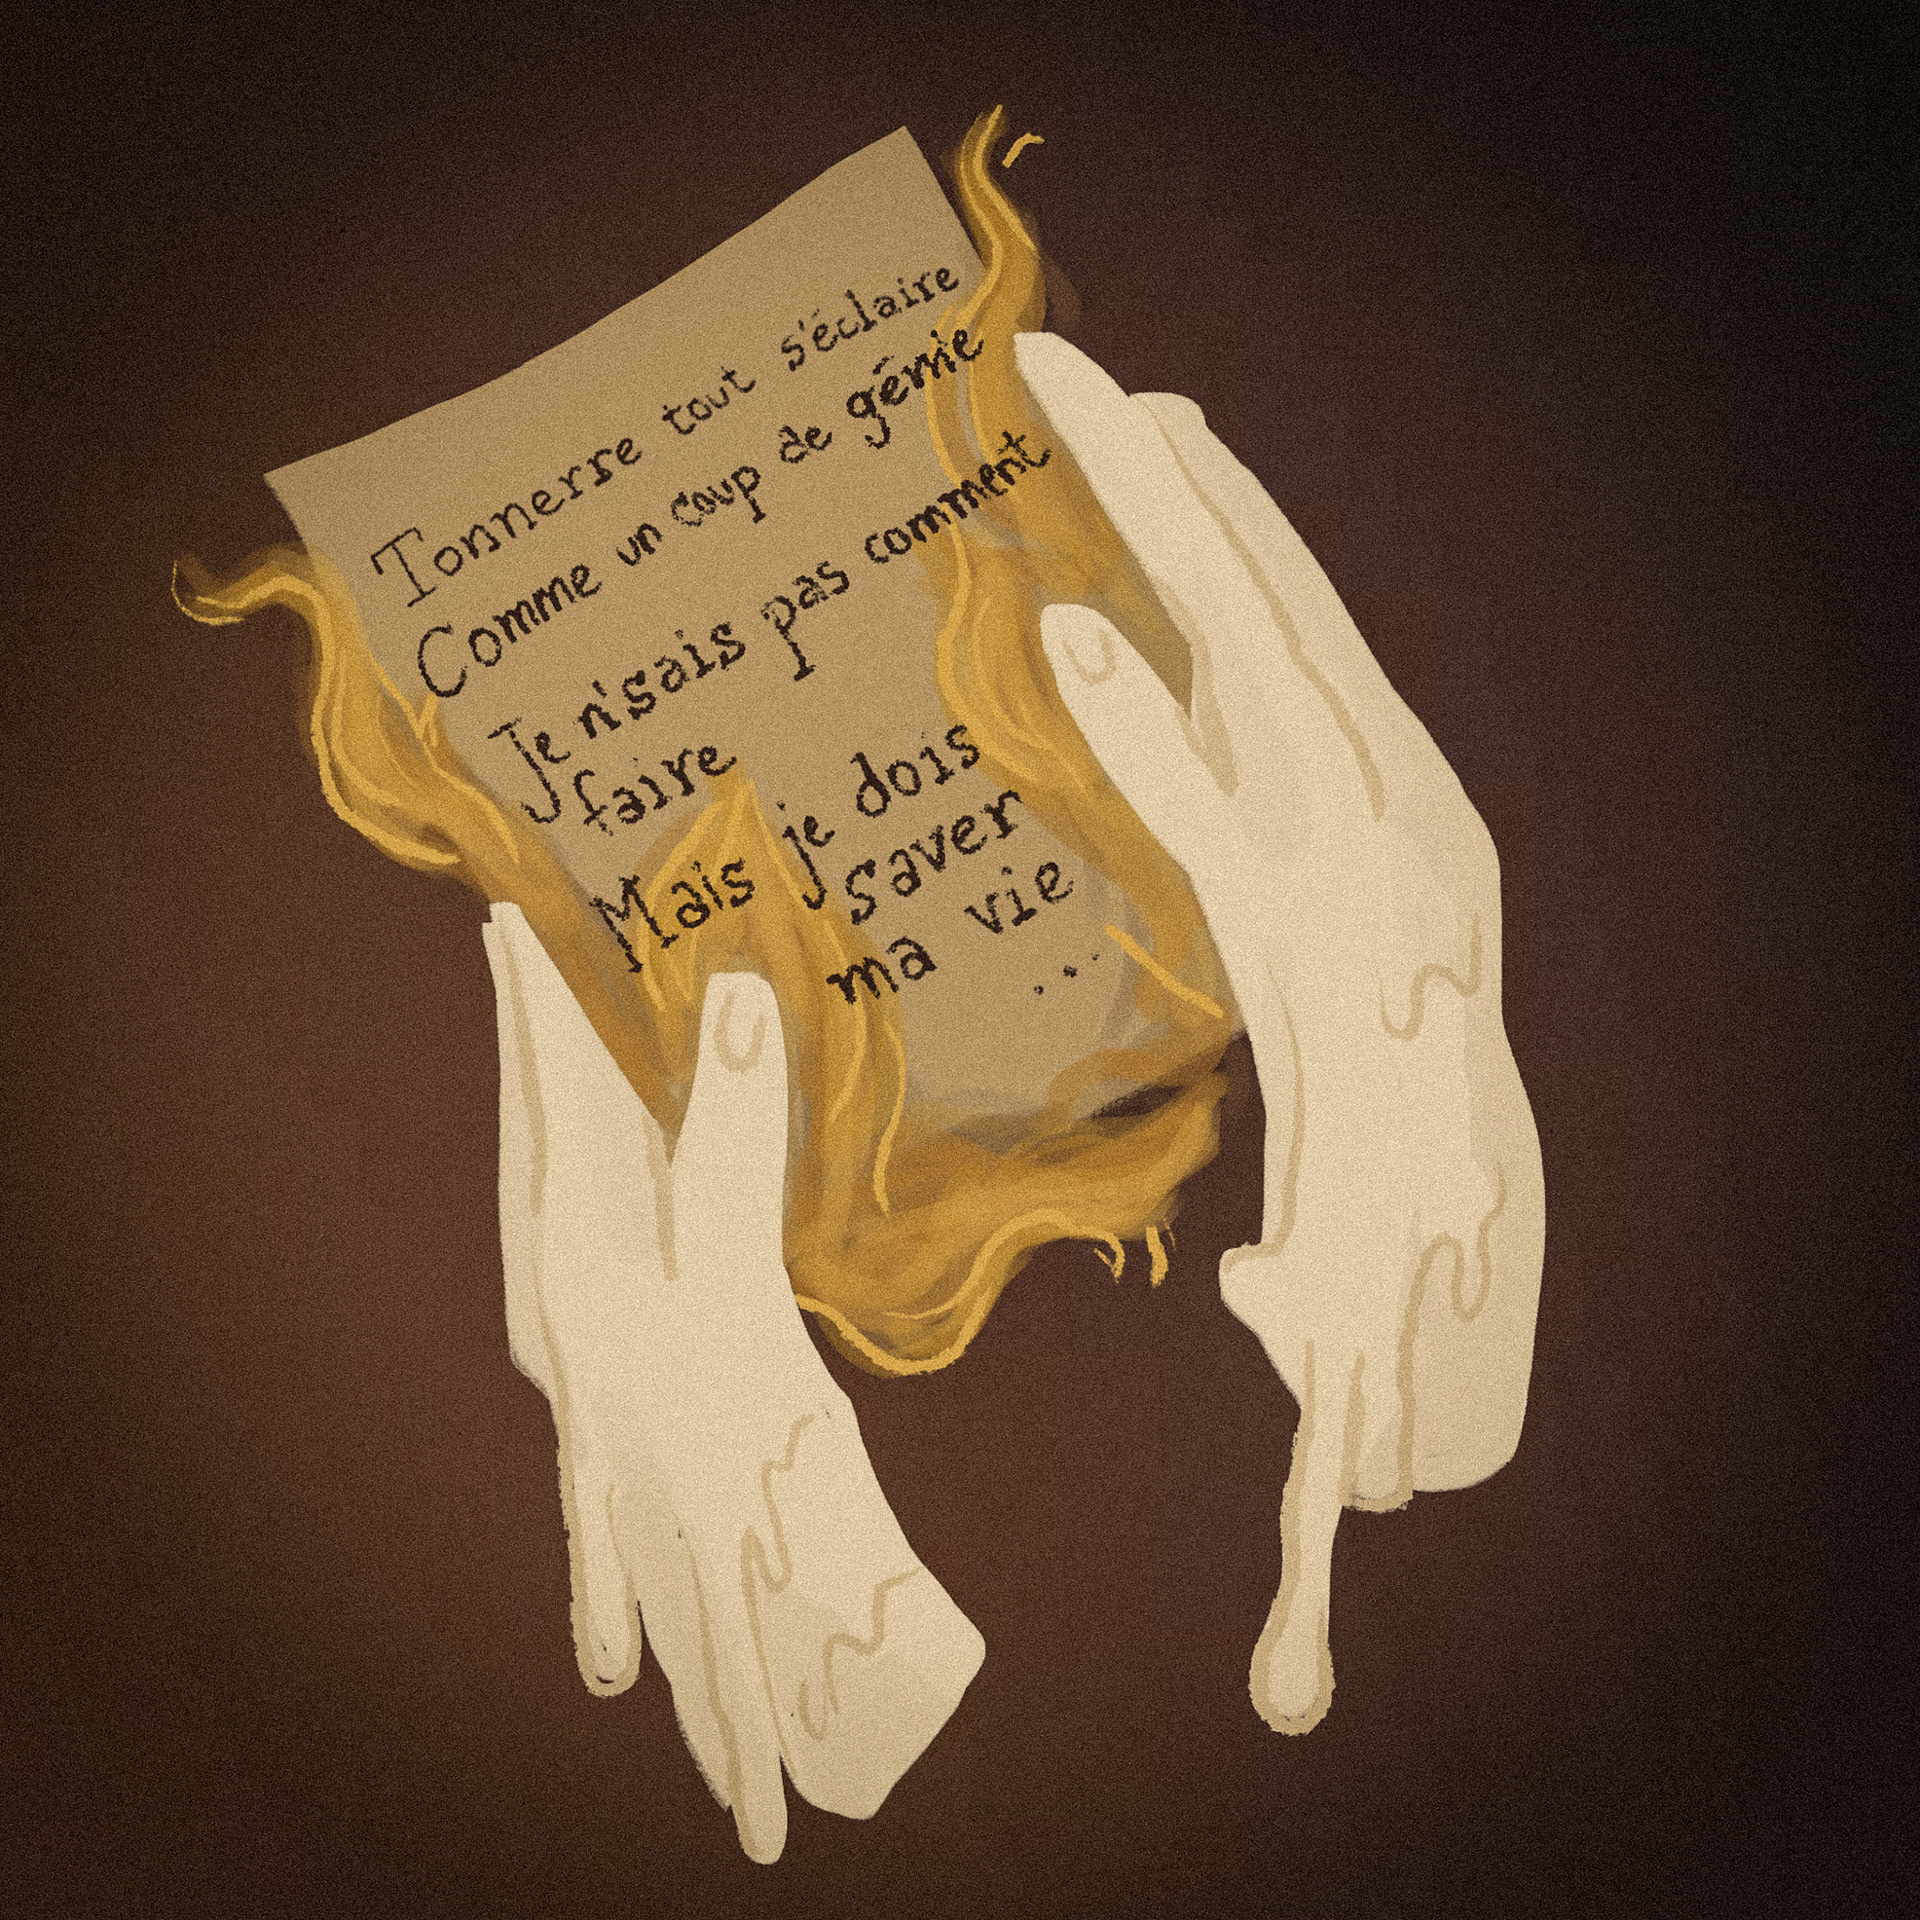 Tonnerre tout s'éclaire
Comme un coup de génie
Je n'sais pas comment
faire
Mais je dois
saver
ma vie
...